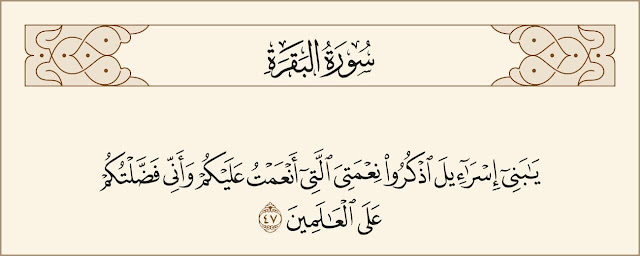 سُورَةُ البَقَرَةِ
يَـٰبَنِىٓ إِسْرَٰٓءِيلَ ٱذْكُرُوا۟ نِعْمَتِىَ ٱلَّتِىٓ أَنْعَمْتُ عَلَيْكُمْ وَأَنِّى فَضَّلْتُكُمْ
عَلَى ٱلْعَـٰلَمِينَ ٤٧